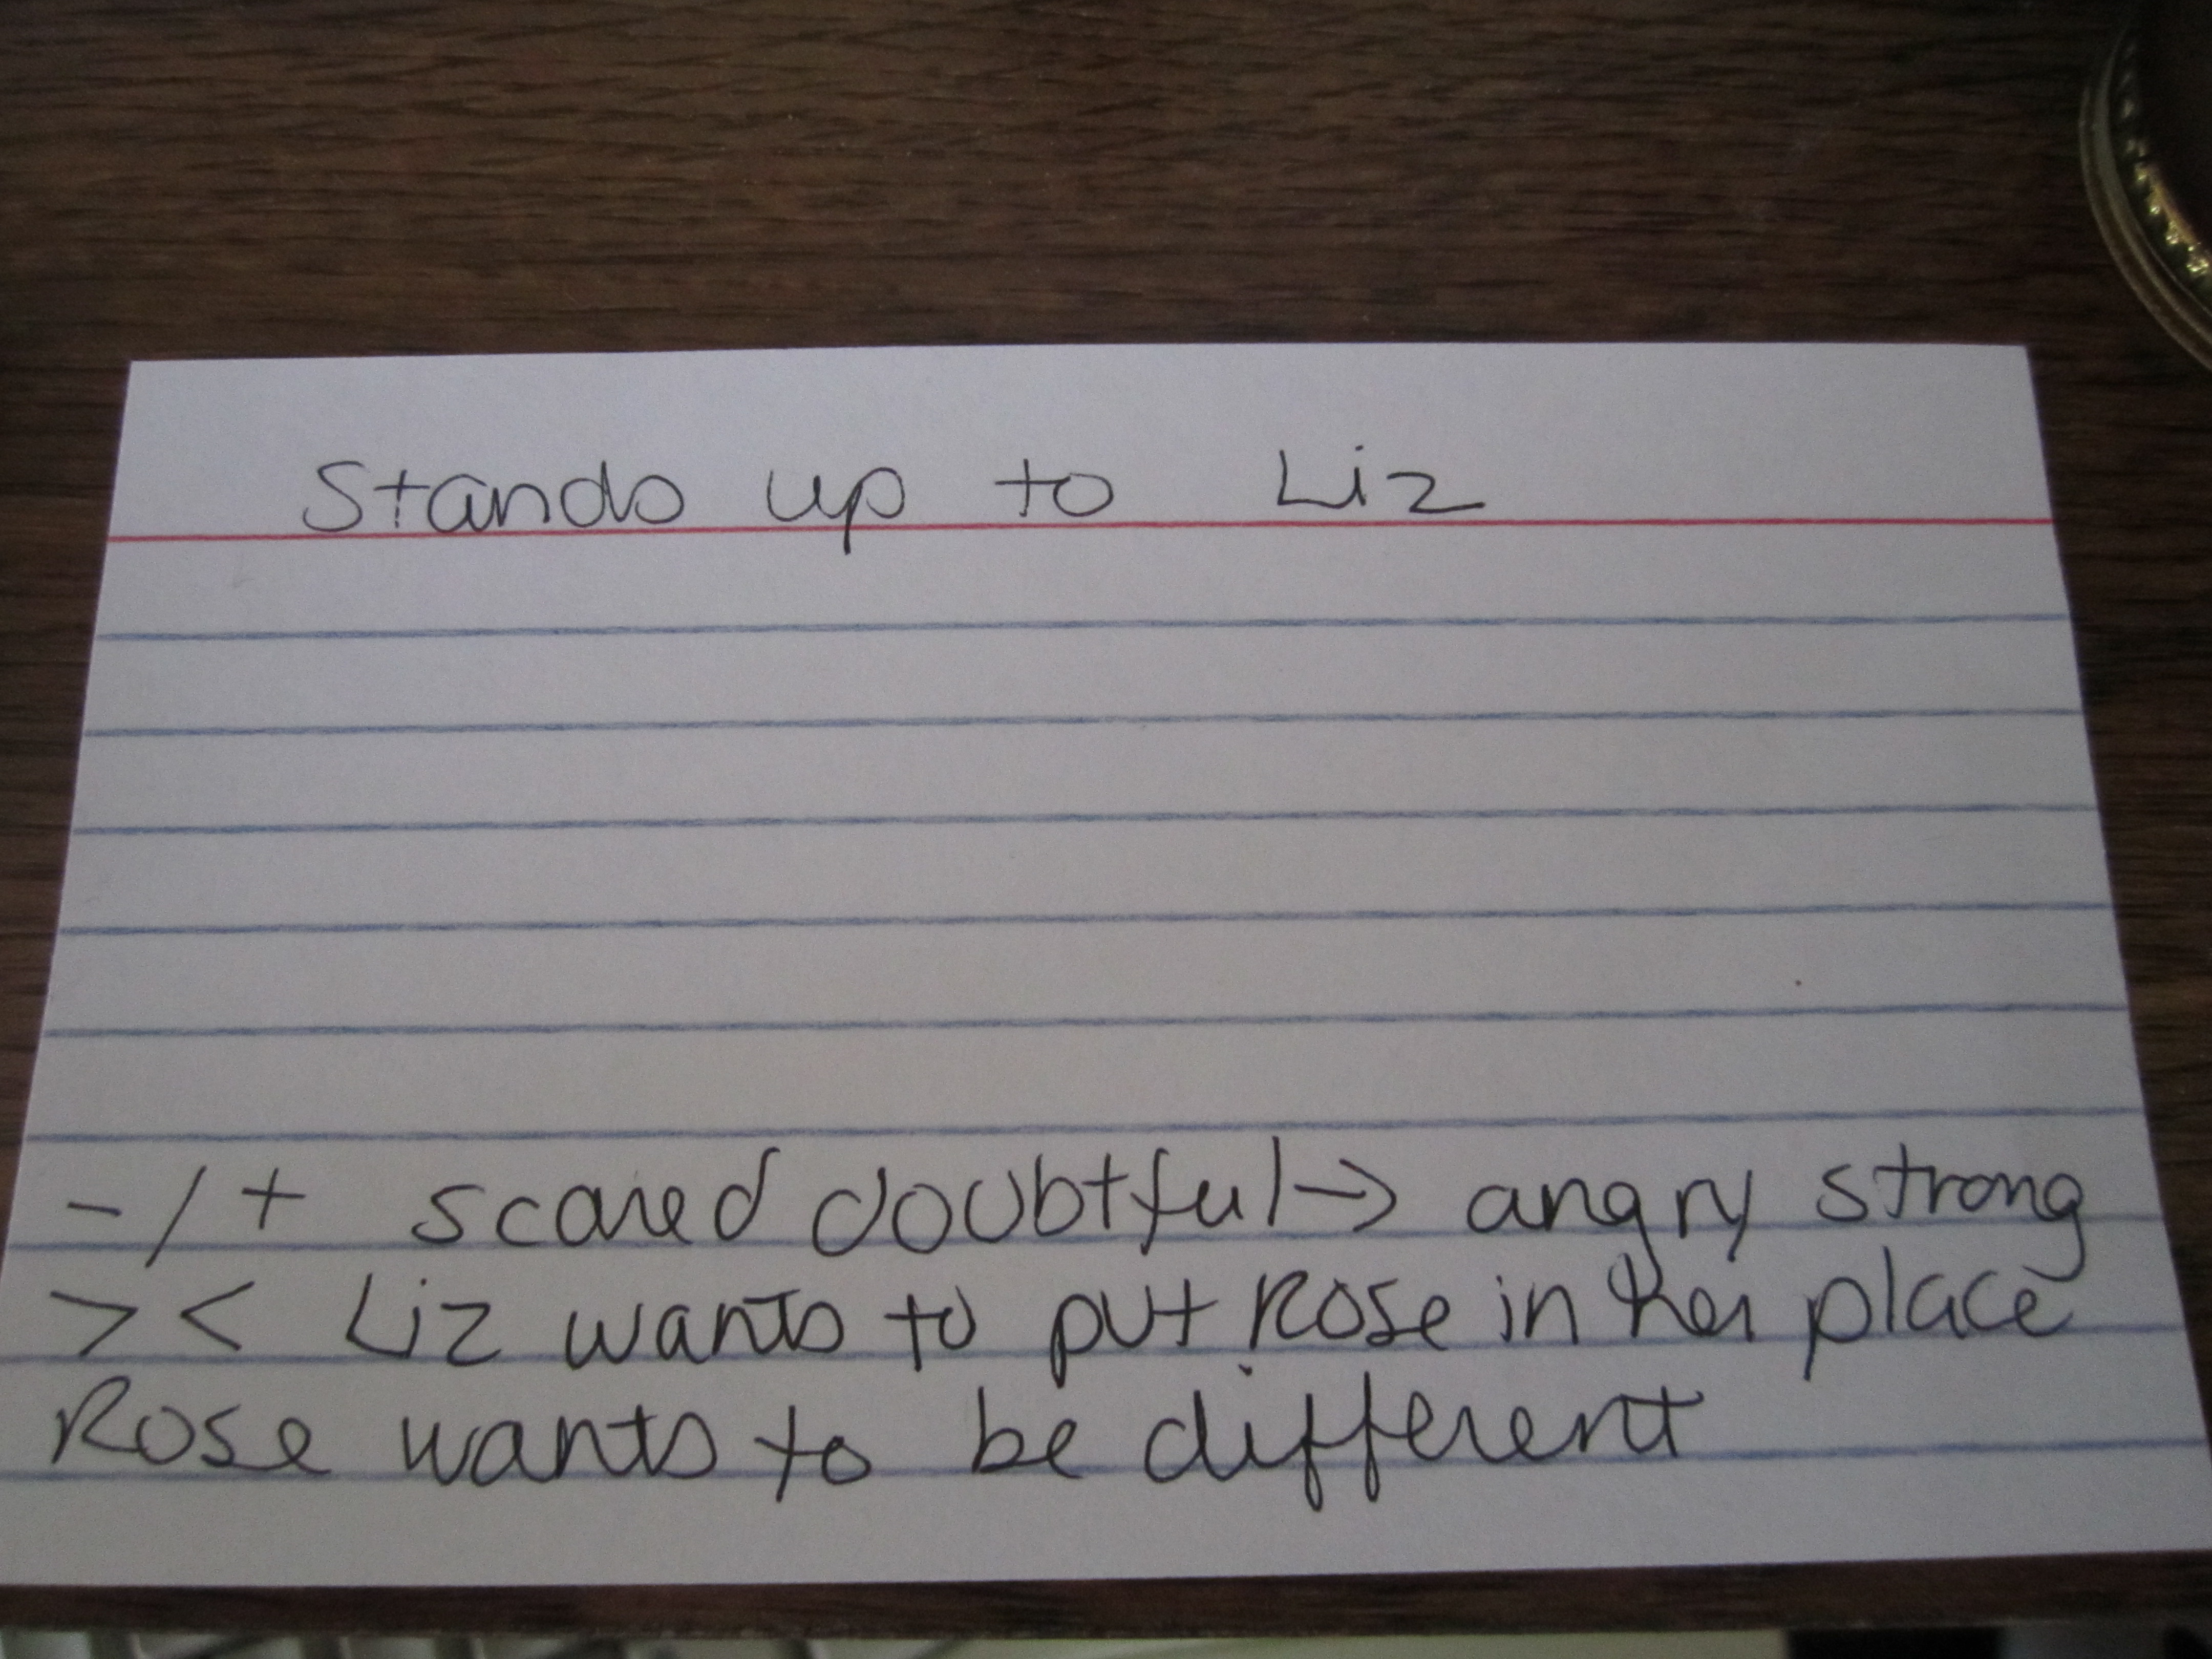 Stands up to Liz
- / + scared doubtful → angry strong
> < Liz wants to put Rose in her place
Rose wants to be different